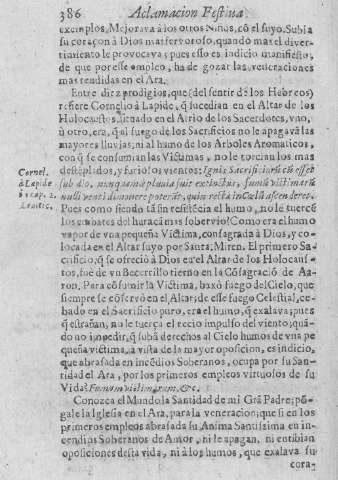 386 Aclamacion Festiua
exemplos, Mejorava à los otros Niños, cõ el suyo. Subia
su coraçon à Dios mas fervoroso, quando mas el diver-
timiento le provocava; pues esso es indicio manifiesto,
de que por esse empleo, ha de gozar las veneraciones
mas rendidas en el Ara.
Entre diez prodigios, que (del sentir de los Hebreos)
refiere Cornelio à Lapide, q̃ sucedian en el Altar de los
Holocaustos, situado en el Atrio de los Sacerdotes, vno,
ù otro, era, q̃ al fuego de los Sacrificios no le apagavã las
mayores lluvias; ni al humo de los Arboles Aromaticos,
con q̃ se consumian las Victimas, no le torcian los mas
destẽplados, y furiosos vientos: Ignis Sacrificiorũ cũ esset
Cornel. à Lapide in cap. 2. Levitic.
sub dio, nunquam à pluvia fuit extinctus, fumũ victimarũ
nulli venti dimovere poterãt, quin recta in Cœlũ ascenderet.
Pues como siendo tã sin resistẽcia el humo, no le tuerce
los embates del huracã mas sobervio? Como era el humo
vapor de vna pequeña Victima, consagrada à Dios, y co-
locada en el Altar suyo por Santa; Miren. El primero Sa-
crificio, q̃ se ofreciò à Dios en el Altar de los Holocaus-
tos, fuè de vn Becerrillo tierno en la Cõsagraciõ de Aa-
ron. Para cõsumir la Victima, baxò fuego del Cielo, que
siempre se cõservò en el Altar; de esse fuego Celestial, ce-
bado en el Sacrificio puro, era el humo, q̃ exalava; pues
q̃ estrañan, no le tuerça el recio impulso del viento; quã-
do no impedir, q̃ subã derechos al Cielo humos de vna pe
queña victima, à vista de la mayor oposicion, es indicio,
que abrasada en incẽdios Soberanos, ocupa por su San-
tidad el Ara, por los primeros empleos virtuosos de su
Vida: Fumum victimarum, &c.
Conozca el Mundo la Santidad de mi Grã Padre; põ-
gale la Iglesia en el Ara, para la veneracion; que si en los
primeros empleos abrasada su Anima Santissima en in-
cendios Soberanos de Amor, ni le apagan, ni entibian
oposiciones desta vida, ni à los humos, que exalava su
cora-